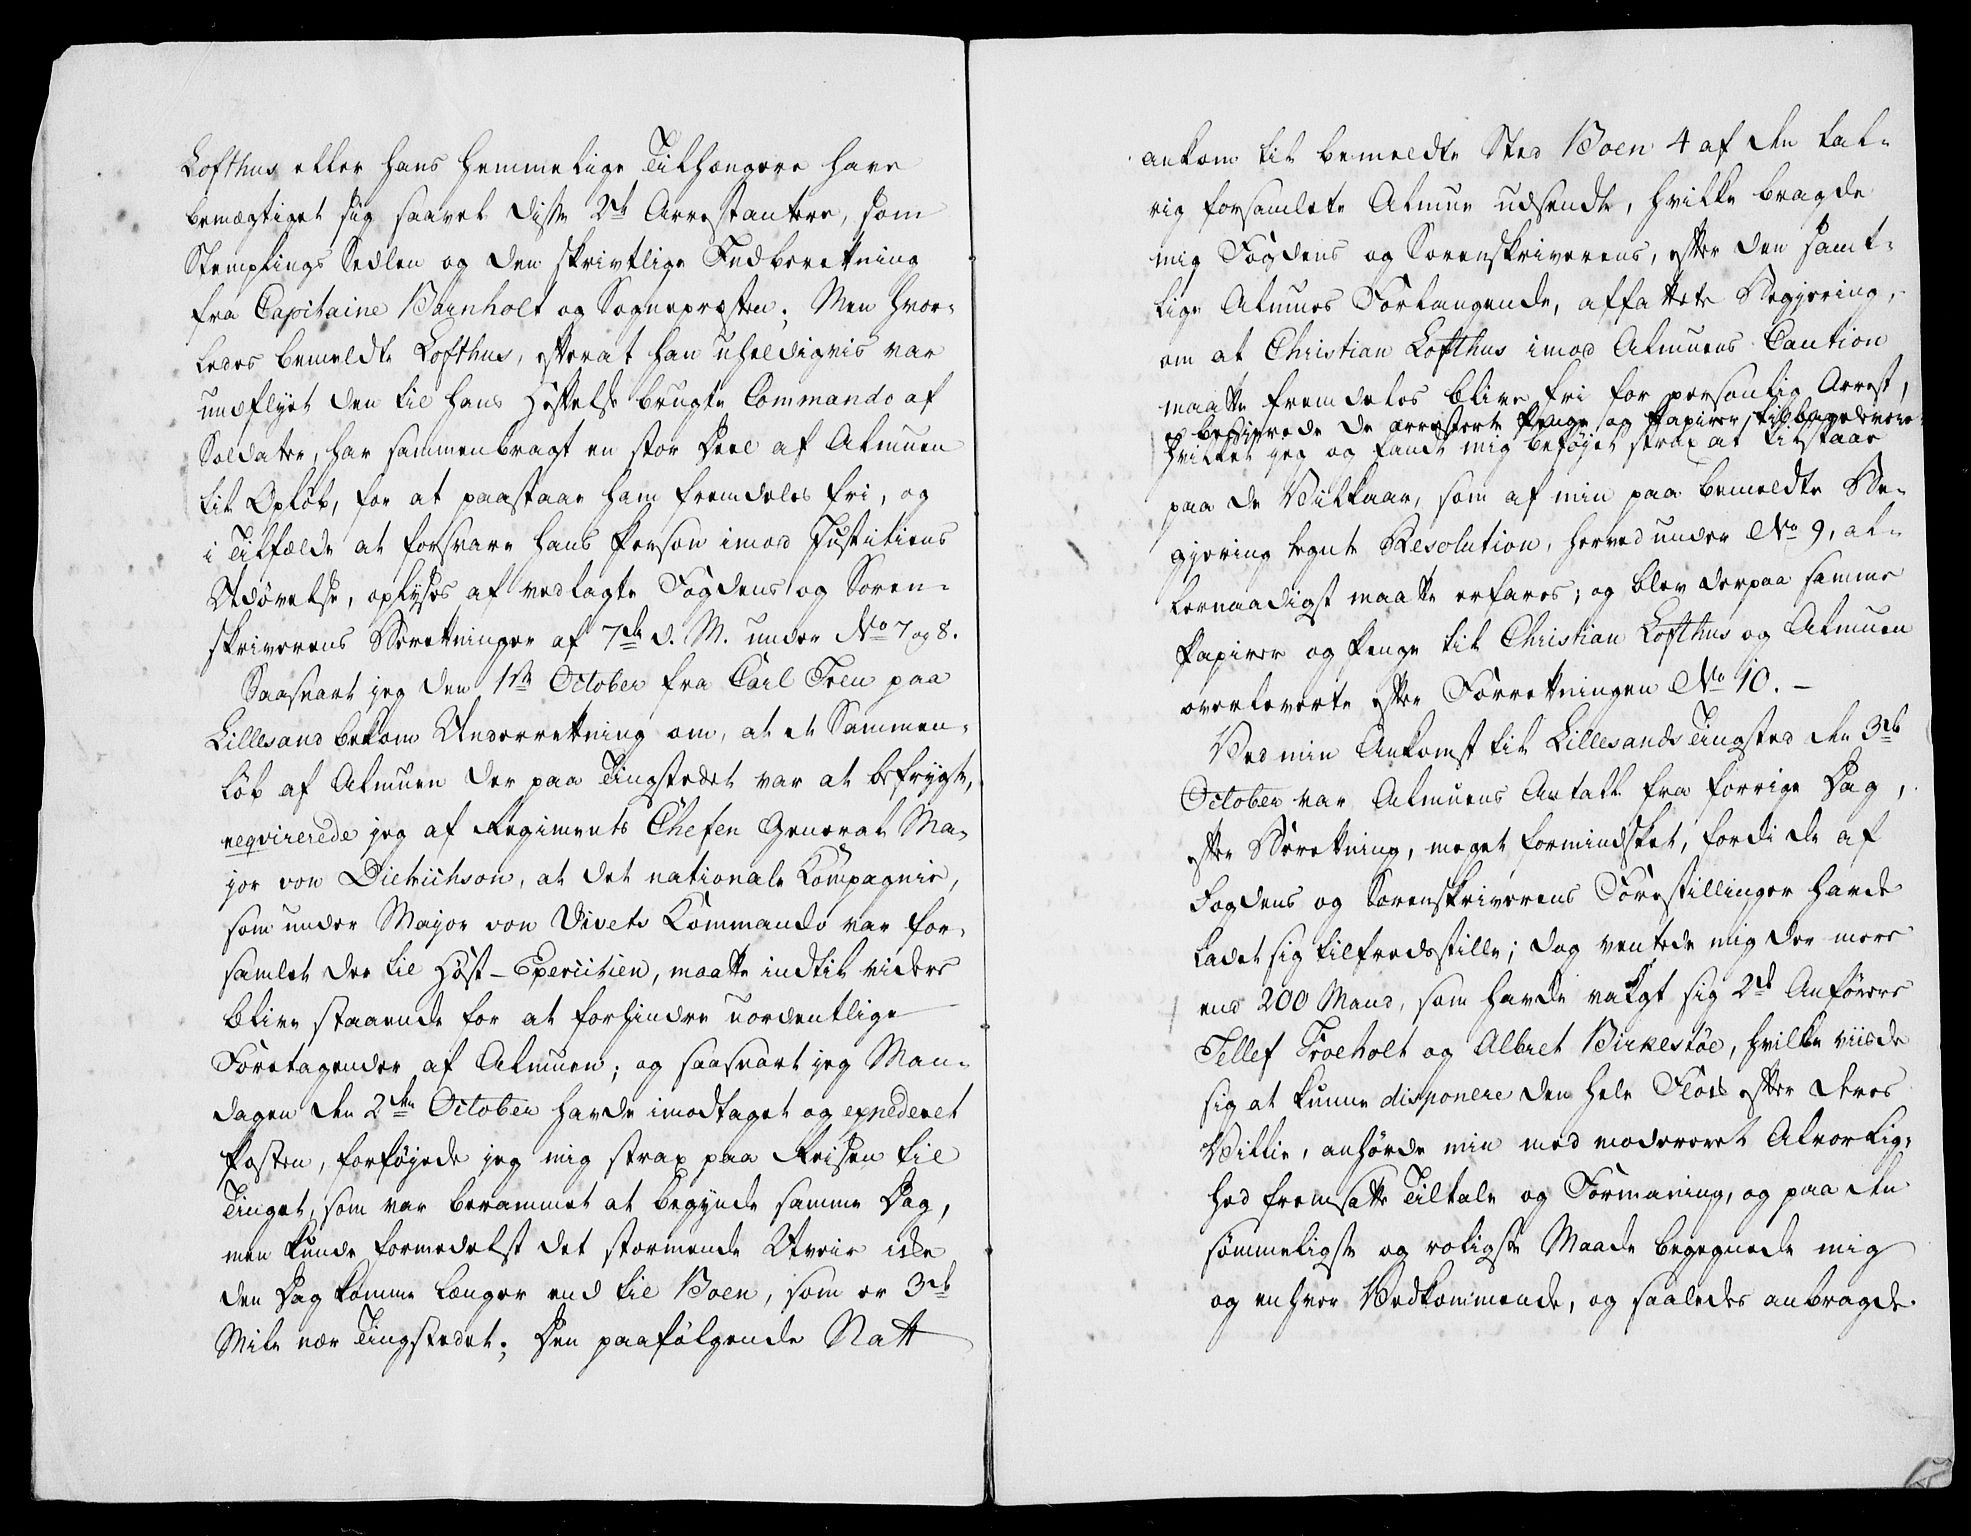 Lofthus eller hans hemmelige Tilhængere have
bemægtiget sig saavel disse 2de Arrestantere, som
Stemplings Sedlen og den skrivtlige Indberetning
fra Capitaine Barnholt og Sognepræsten; Men hvor-
ledes bemeldte Lofthus, efterat han uheldigvis var
undflyet den til hans Hæftelse brugte Commando af
Soldater, har sammenbragt en stor Deel af Almuen
til Opløb, for at paastaae ham fremdeles fri, og
i Tilfælde at forsvare hans Person imod Justitiens
Udøvelse, oplyses af vedlagte Fogdens og Soren-
skriverens Beretninger af 7de d. M. under No 7 og 8.
Saasnart jeg den 1ste October fra Carl Treu paa
Lillesand bekom Underretning om, at et Sammen-
løb af Almuen der paa Tingstedet var at befrygte,
reqvirerede jeg af Regiments Chefen General Ma-
jor von Dietrichson, at det nationale Kompagnie,
som under Major von Divets Kommando var for-
samlet der til Høst-Exercitien, maatte indtil videre
blive staaende for at forhindre uordentlige
Foretagender af Almuen; og saasnart jeg Man-
dagen den 2den October havde imodtaget og expederet
Posten, forføjede jeg mig strax paa Reisen til
Tinget, som var berammet at begynde samme Dag,
men kunde formedelst det stormende Uveir ikke
den Dag komme længer end til Boen, som er 3de
Mile nær Tingstedet; Den paafølgende Natt
ankom til bemeldte Sted Boen 4 af den tal-
rig forsamlete Almue udsendte, hvilke bragde
mig Fogdens og Sorenskriverens, efter den samt-
lige Almues Forlangende, affattete Begjering,
om at Christian Lofthus imod Almuens Caution
maatte fremdeles blive fri for personlig Arrest,
og begjerede de arresterte Penge og Papirer tilbageleverte
hvilket jeg og fandt mig beføjet strax at tilstaae
paa de Vilkaar, som af min paa bemeldte Be-
gjering tegnte Resolution, herved under No 9, al-
lernaadigst maatte erfares; og blev derpaa samme
Papirer og Penge til Christian Lofthus og Almuen
overleverte efter Forretningen No 10. -
Ved min Ankomst til Lillesands Tingsted den 3de
October var Almuens Antall fra forrige Dag,
efter Beretning, meget formindsket, fordi de af
Fogdens og Sorenskriverens Forestillinger havde
ladet sig tilfredsstille; dog ventede mig der mere
end 200 Mand, som havde valgt sig 2de Anførere
Tellef Troeholt og Albret Birkestøe, hvilke viiste
sig at kunne disponere den hele Flok efter deres
Villie, anhørde min med modereret Alvorlig-
hed fremsatte Tiltale og Formaning, og paa den
sømmeligste og roligste Maade begegnede mig
og enhver Vedkommende, og saaledes anbragde